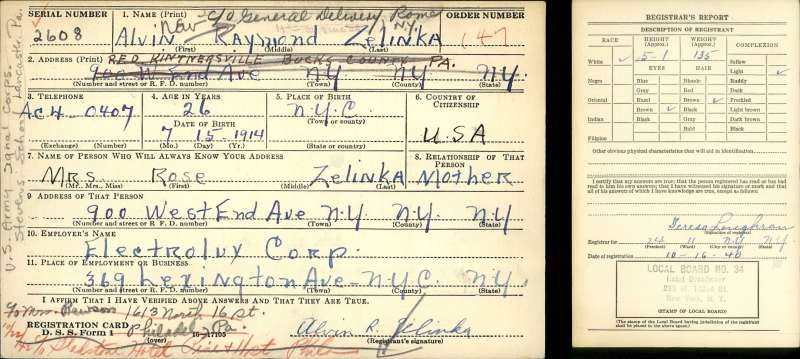 SERIAL NUMBER
1. NAME (Print)
ORDER NUMBER
Now c/o General Delivery Rome
N.Y.
2608
Alvin Raymond Zelinka
147
(First) (Middle) (Last)
2. ADDRESS (Print)
RED KINTNERSVILLE BUCKS COUNTY PA.
900 W End Ave NY NY NY
(Number and street or R. F. D. number) (Town) (County) (State)
3. TELEPHONE
4. AGE IN YEARS
5. PLACE OF BIRTH
6. COUNTRY OF CITIZENSHIP
AC4 0407
26
N.Y.C
DATE OF BIRTH
(Town or county)
USA
7 15 1914
N.Y.
(Exchange) (Number) (Mo.) (Day) (Yr.) (State or country)
7. NAME OF PERSON WHO WILL ALWAYS KNOW YOUR ADDRESS
8. RELATIONSHIP OF THAT PERSON
Mrs Rose Zelinka Mother
(Mr., Mrs., Miss) (First) (Middle) (Last)
9. ADDRESS OF THAT PERSON
900 West End Ave N.Y. N.Y. N.Y.
(Number and street or R. F. D. number) (Town) (County) (State)
10. EMPLOYER'S NAME
Electrolux Corp.
11. PLACE OF EMPLOYMENT OR BUSINESS
369 Lexington Ave - N.Y.C. N.Y.
(Number and street or R. F. D. number) (Town) (County) (State)
I AFFIRM THAT I HAVE VERIFIED ABOVE ANSWERS AND THAT THEY ARE TRUE.
1613 North 16 St.
Philadel Pa.
REGISTRATION CARD
D. S. S. Form 1
(over)
Alvin R. Zelinka
(Registrant's signature)
Hotel
U.S. Army Signal Corps.
Stevens School Lancaster, Pa.
REGISTRAR'S REPORT
DESCRIPTION OF REGISTRANT
RACE
HEIGHT (Approx.)
WEIGHT (Approx.)
COMPLEXION
White
5-1
135
Sallow
EYES
HAIR
Light
Negro
Blue
Blonde
Ruddy
Gray
Red
Dark
Oriental
Hazel
Brown
Freckled
Brown
Black
Light brown
Indian
Black
Gray
Dark brown
Bald
Black
Filipino
Other obvious physical characteristics that will aid in identification
I certify that my answers are true; that the person registered has read or has had
read to him his own answers; that I have witnessed his signature or mark and that
all of his answers of which I have knowledge are true, except as follows:
Teresa Loughran
(Signature of registrar)
Registrar for 24 11 N.Y. N.Y.
(Precinct) (Ward) (City or county) (State)
Date of registration 10-16-40
LOCAL BOARD NO. 34
New York, N. Y.
(STAMP OF LOCAL BOARD)
(The stamp of the Local Board having jurisdiction of the registrant
shall be placed in the above space.)